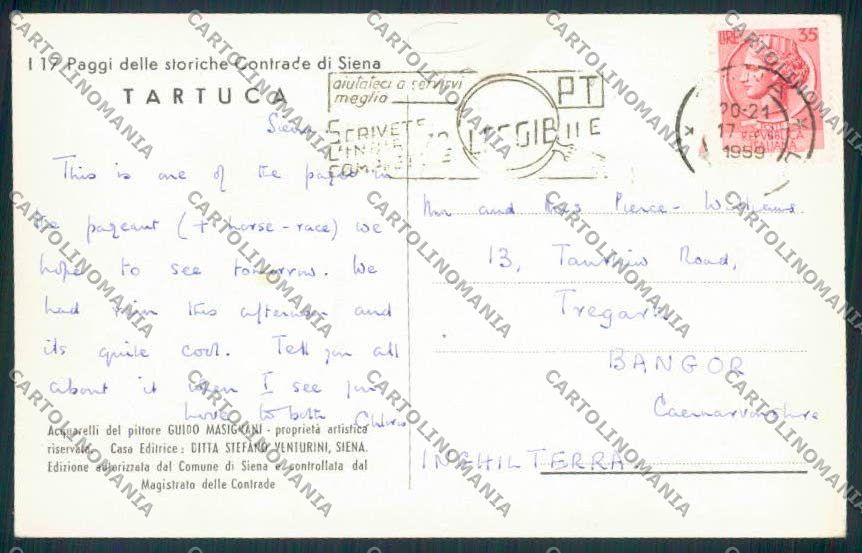 I 17 Paggi delle storiche Contrade di Siena
TARTUCA
Siena
This is one of the pages in
the pageant (+ horse-race) we
hope to see tomorrow. We
had rain this afternoon and
its quite cool. Tell you all
about it when I see you
love to both
Acquarelli del pittore GUIDO MASIGNANI - proprietà artistica
riservata. Casa Editrice: DITTA STEFANO VENTURINI, SIENA.
Edizione autorizzata dal Comune di Siena e controllata dal
Magistrato delle Contrade
aiutateci a servirvi
meglio
PT
SCRIVETE
LEGGIBILE
20-21
17
1959
LIRE 35
REPVBBLICA
ITALIANA
Mr and Mrs Pierce-Williams
13, Road,
Tregarth
BANGOR
Caernarvonshire
INGHILTERRA
CARTOLINOMANIA